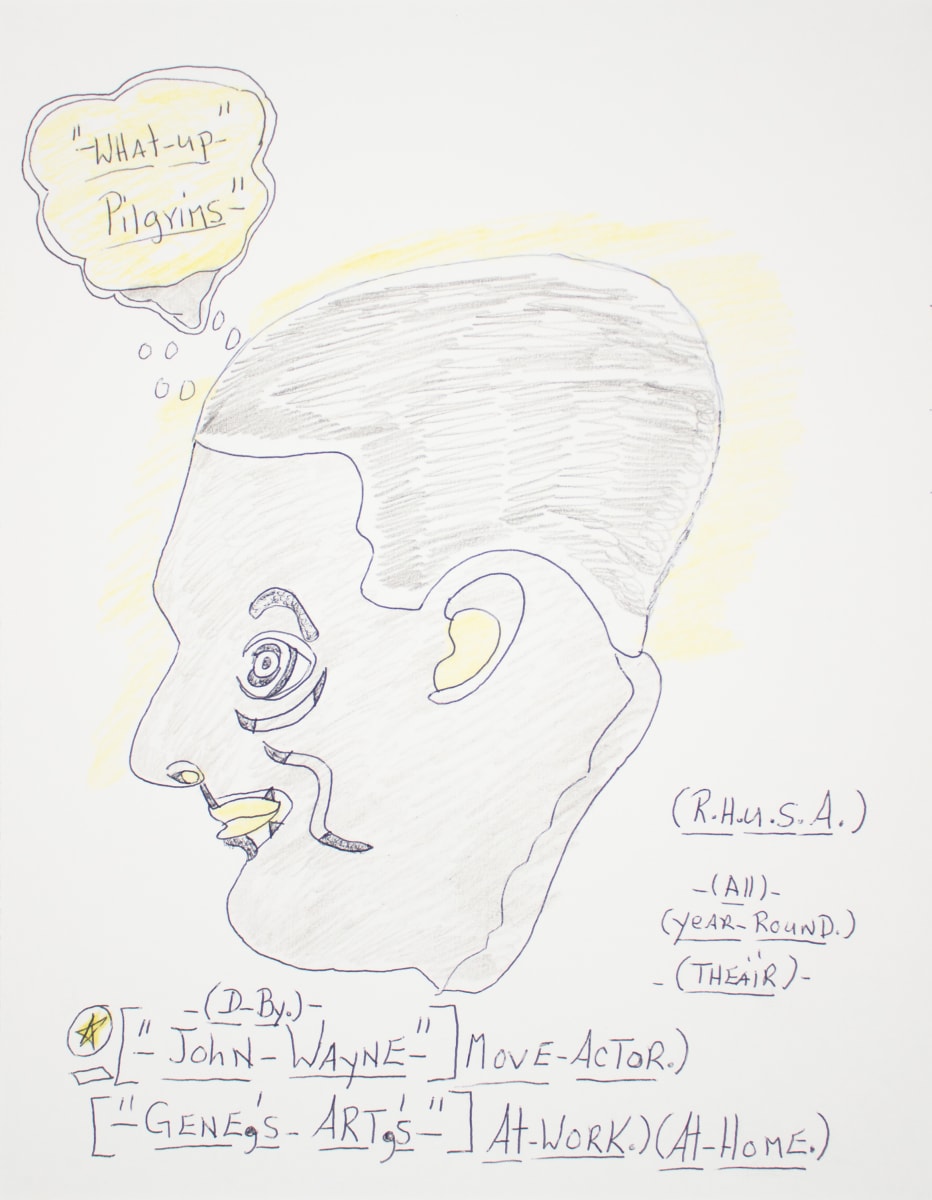 "-WHAt-up-"
Pilgrims-"
(R.H.u.S.A.)
-(All)-
(YEAR-ROUND.)
-(THEAïR)-
-(D-By.)-
["-John-WAYNE-"] MOVE-ACTOR.)
["-GENE,'s-ART,'s-"] At-WORK.)(At-HOME.)